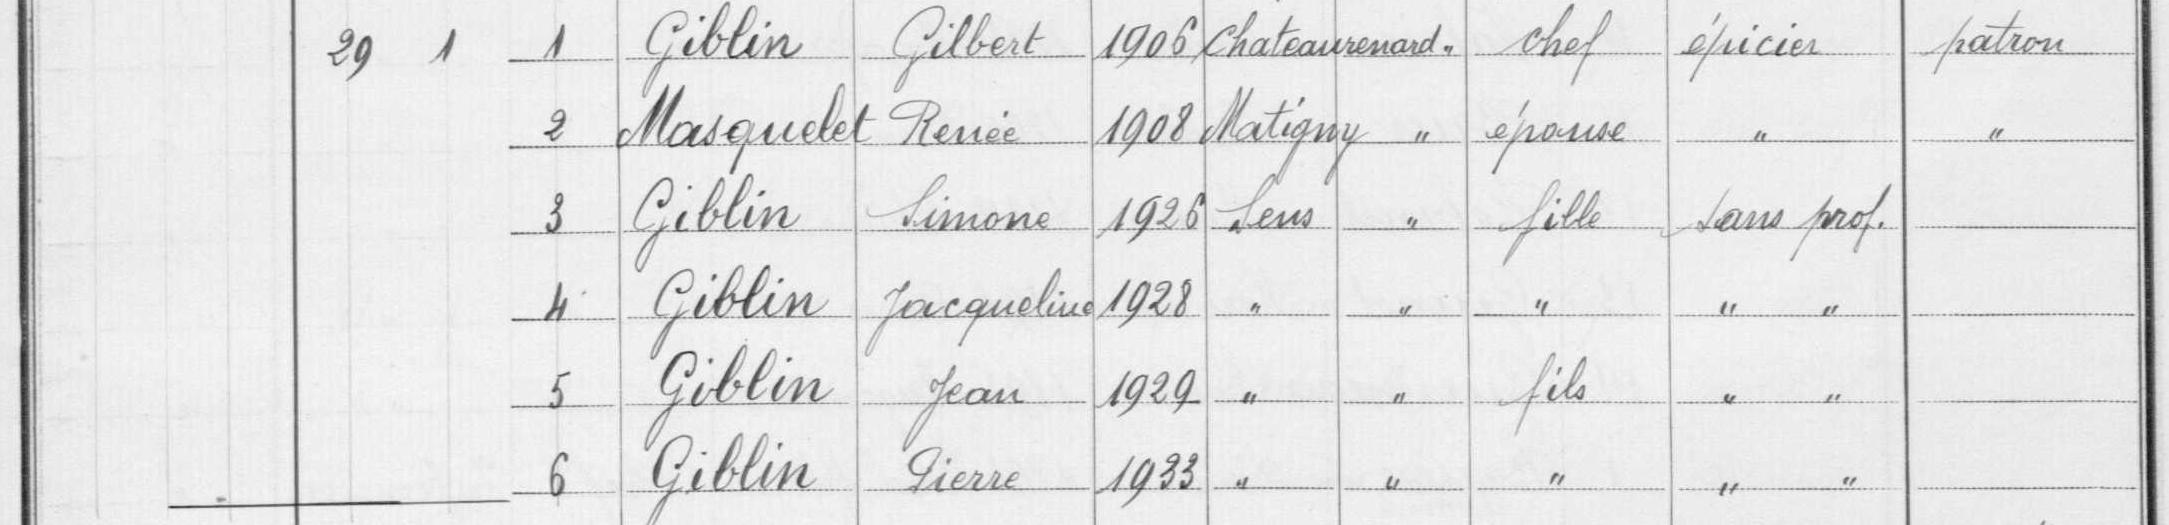 29 1 1 Giblin Gilbert 1906 Chateaurenard " chef épicier patron
2 Masquelet Renée 1908 Matigny " épouse " "
3 Giblin Simone 1926 Sens " fille sans prof.
4 Giblin Jacqueline 1928 " " " " "
5 Giblin Jean 1929 " " fils " "
6 Giblin Pierre 1933 " " " " "